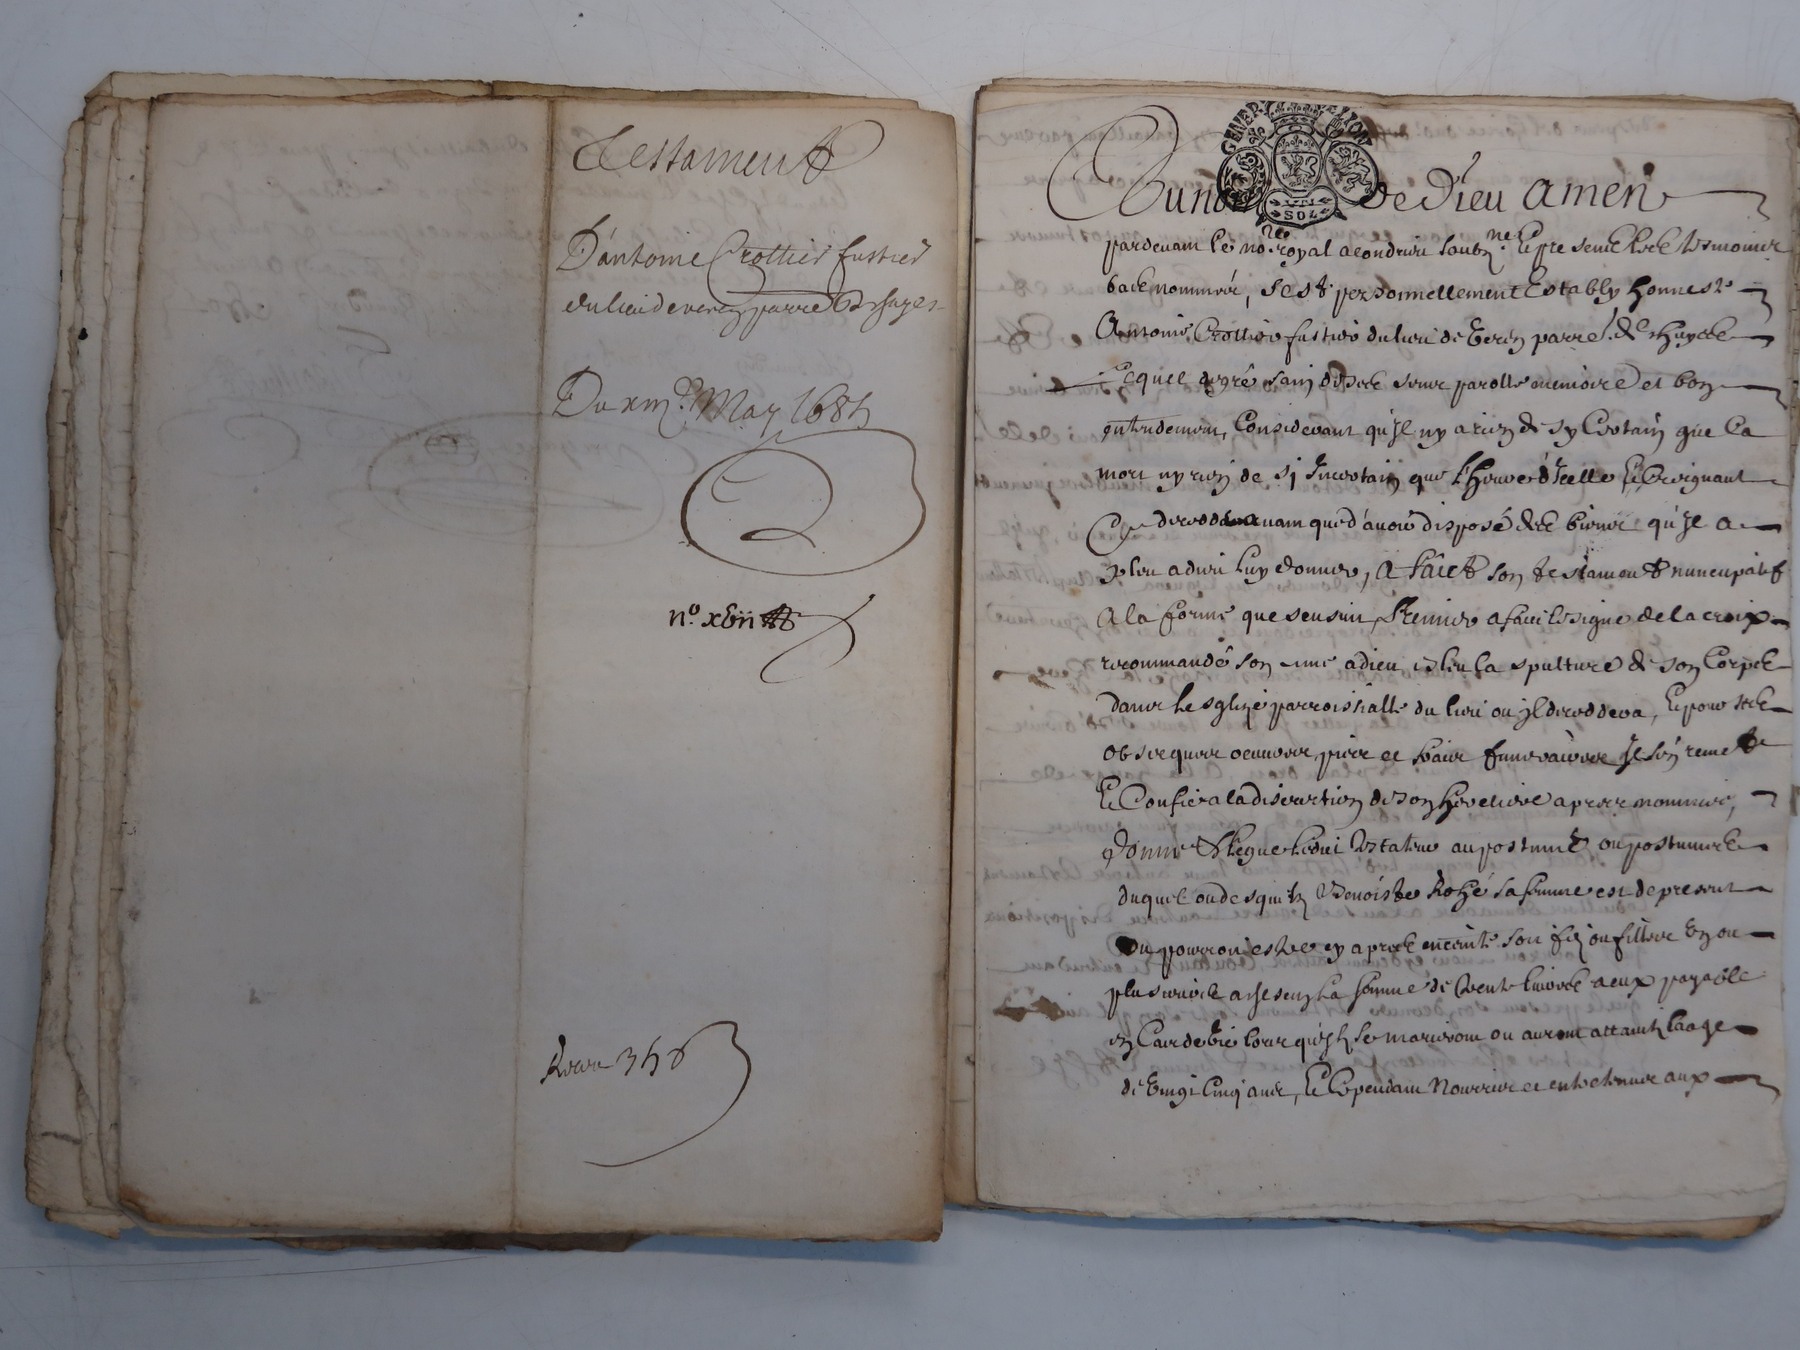 Testament
D'antoine Crottier fustier
du lieu de verin parre de chuyes
Du xiii.e May 1681
n.o xviii
GENER
LYON
SOL
Au nom de Dieu amen
pardevant le no.re royal a condrieu soubz.ne Et presens les tesmoins
bas nommés, s'est personnellement Estably honneste
Antoine Crottier fustier du lieu de Verin parre. de chuyes
Lequel de gré sain de ses sens parolle memoire et bon
entendement, Considerant qu'Il ny a rien de sy Certain que la
mort ny rien de sj Incertain que l'heure d'Icelle Et Craignant
deceder avant que d'avoir disposé des biens qu'Il a
pleu a dieu luy donner, A faict son testament nuncupatif
A la forme que sensuit, Premier a fait le signe de la croix
recommandé son ame a dieu esleu la spulture de son Corps
dans lesglize parroissialle du lieu ou Il deceddera, Et pour ses
obseques oeuvres pies et frais funeraires Il s'en remet
Et Confie a la discretion de son heretiere apres nommée,
Donne & legue ledit testateur au postume ou postumes
duquel ou desquels Benoiste Rozé sa femme est de present
ou pourroit estre cy apres enceinte soit filz ou filles Un ou
plusieurs a Iceux la somme de Cent livres a eux payable
en Cas de vie lors qu'Ils se marieront ou auront attaint laage
de vingt Cinq ans, Et Cependant Nourris et entretenus aux